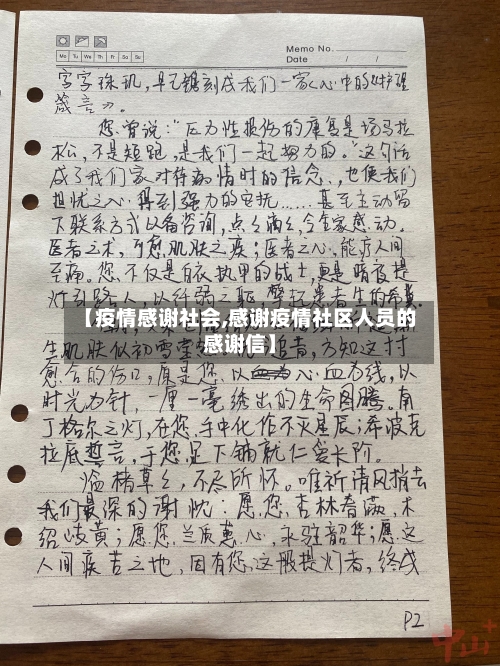 Mo Tu We Th Fr Sa Su
Memo No.
Date / /
字字珠玑，早已镌刻成我们一家人心中的《护理
箴言》。
您曾说："压力性损伤的康复是场马拉
松，不是短跑，是我们一起努力的。"这句话
成了我们家对待病情时的信念，也使我们
担忧之心得到强力的安抚……甚至主动留
下联系方式以备咨询，点点滴滴，令全家感动。
医者之术，可愈肌肤之疾；医者之心，能疗人间
至痛。您不仅是白衣执甲的战士，更是暗夜提
灯引路人，以纤弱之躯，擎起患者生的希冀。
【疫情感谢社会,感谢疫情社区人员的
感谢信】
生肌肤似初雪 追昔，方知这村
愈合的伤口，原是您以心血为线，以
时光为针，一厘一毫绣出的生命图腾。南
丁格尔之灯，在您手中化作不灭星辰；希波克
拉底誓言，于您足下铺就仁爱长阶。
临楮草草，不尽所怀。唯祈清风捎去
我们最深的谢忱：愿您杏林春满，术
绍岐黄；愿您兰质蕙心，永驻韶华；愿这
人间疾苦之地，因有您这般提灯者，终成
P2